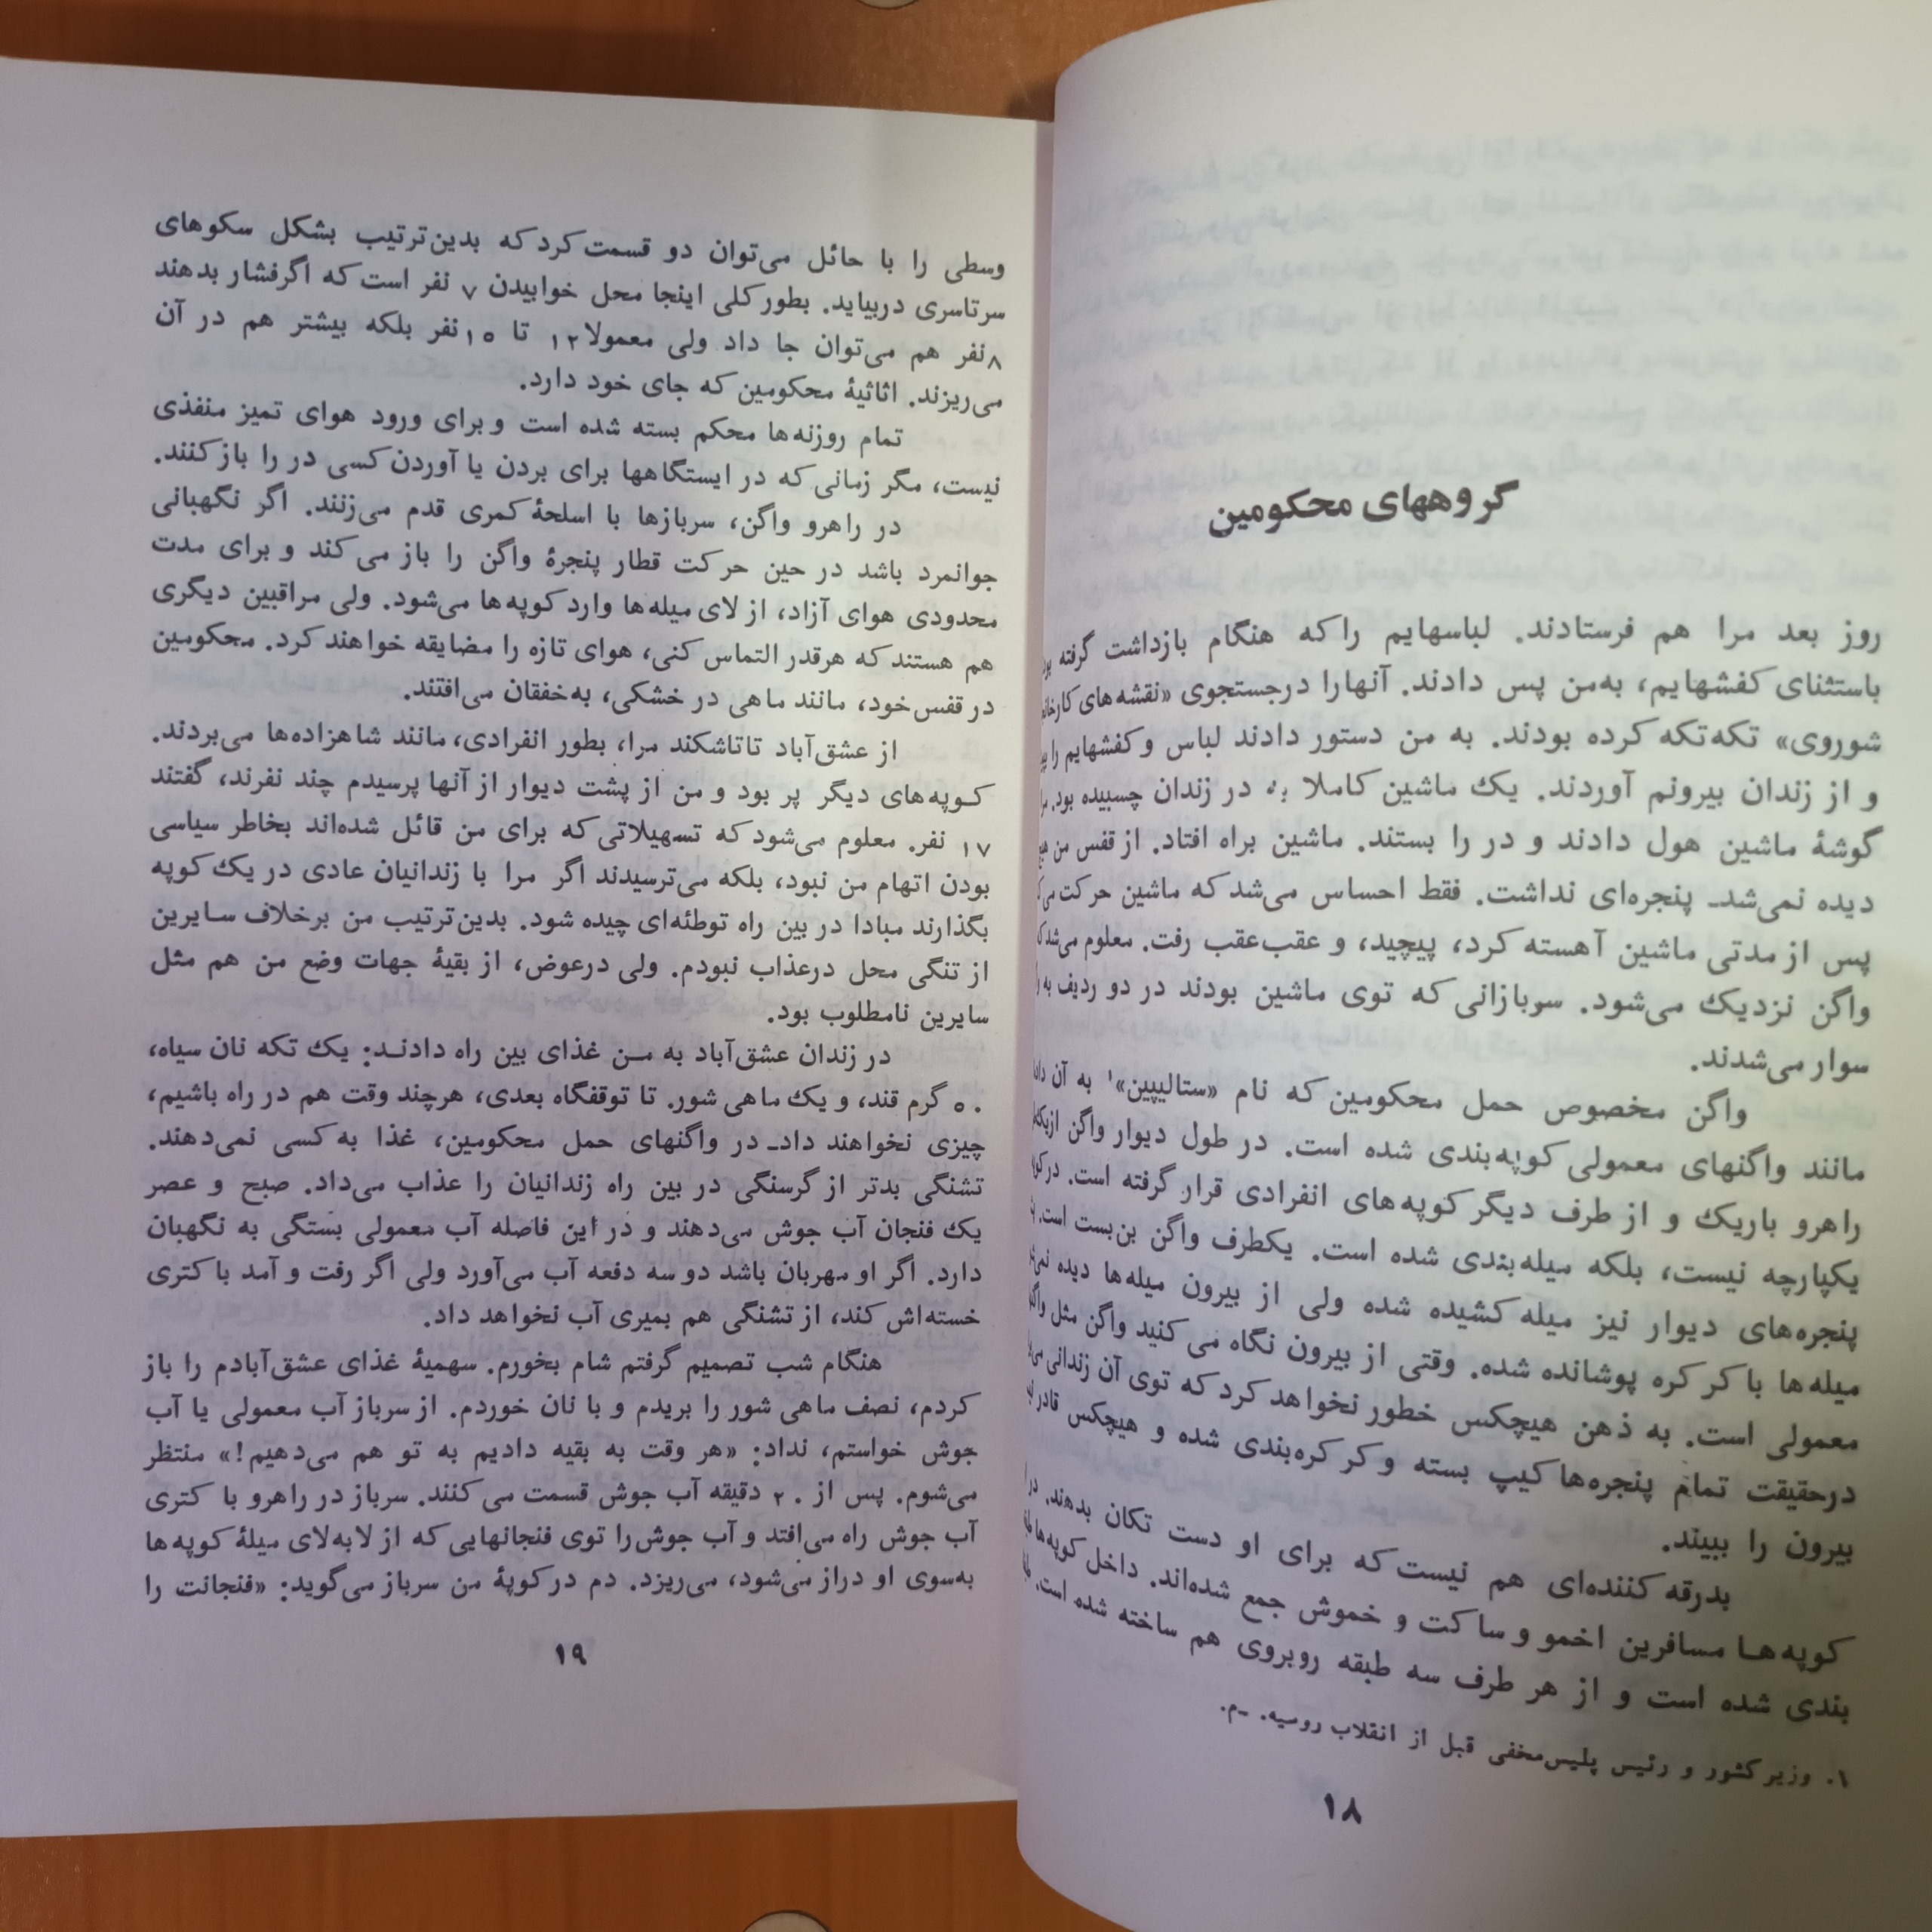 گروههای محکومین
روز بعد مرا هم فرستادند. لباسهایم را که هنگام بازداشت گرفته
باستثنای کفشهایم، به‌من پس دادند. آنهارا درجستجوی «نقشه‌های
شوروی» تکه‌تکه کرده بودند. به من دستور دادند لباس و کفشهایم را
و از زندان بیرونم آوردند. یک ماشین کاملا به در زندان چسبیده بود.
گوشهٔ ماشین هول دادند و در را بستند. ماشین براه افتاد. از قفس من
دیده نمی‌شد_ پنجره‌ای نداشت. فقط احساس می‌شد که ماشین حرکت
پس از مدتی ماشین آهسته کرد، پیچید، و عقب‌عقب رفت. معلوم می‌شد
واگن نزدیک می‌شود. سربازانی که توی ماشین بودند در دو ردیف به
سوار می‌شدند.
واگن مخصوص حمل محکومین که نام «ستالیپین»۱ به آن
مانند واگنهای معمولی کوپه‌بندی شده است. در طول دیوار واگن
راهرو باریک و از طرف دیگر کوپه‌های انفرادی قرار گرفته است.
یکپارچه نیست، بلکه میله‌بندی شده است. یکطرف واگن بن‌بست است.
پنجره‌های دیوار نیز میله کشیده شده ولی از بیرون میله‌ها دیده
میله‌ها با کرکره پوشانده شده. وقتی از بیرون نگاه می‌کنید واگن مثل
معمولی است. به ذهن هیچکس خطور نخواهد کرد که توی آن زندانی
درحقیقت تمام پنجره‌ها کیپ بسته و کرکره‌بندی شده و هیچکس قادر
بیرون را ببیند.
بدرقه کننده‌ای هم نیست که برای او دست تکان بدهند.
کوپه‌هـا مسافرین اخمو و ساکت و خموش جمع شده‌اند. داخل کوپه‌ها
بندی شده است و از هر طرف سه طبقه روبروی هم ساخته شده است.
۱. وزیر کشور و رئیس پلیس‌مخفی قبل از انقلاب روسیه. -م.
۱۸
وسطی را با حائل می‌توان دو قسمت کرد که بدین‌ترتیب بشکل سکوهای
سرتاسری دربیاید. بطورکلی اینجا محل خوابیدن ۷ نفر است که اگرفشار بدهند
۸ نفر هم می‌توان جا داد ولی معمولا ۱۲ تا ۱۵ نفر بلکه بیشتر هم در آن
می‌ریزند. اثاثیهٔ محکومین که جای خود دارد.
تمام روزنه‌ها محکم بسته شده است و برای ورود هوای تمیز منفذی
نیست، مگر زمانی که در ایستگاهها برای بردن یا آوردن کسی در را بازکنند.
در راهرو واگن، سربازها با اسلحهٔ کمری قدم می‌زنند. اگر نگهبانی
جوانمرد باشد در حین حرکت قطار پنجرهٔ واگن را باز می‌کند و برای مدت
محدودی هوای آزاد، از لای میله‌ها وارد کوپه‌ها می‌شود. ولی مراقبین دیگری
هم هستند که هرقدر التماس کنی، هوای تازه را مضایقه خواهند کرد. محکومین
در قفس‌خود، مانند ماهی در خشکی، به‌خفقان می‌افتند.
از عشق‌آباد تاتاشکند مرا، بطور انفرادی، مانند شاهزاده‌ها می‌بردند.
کـوپه‌های دیگر پر بود و من از پشت دیوار از آنها پرسیدم چند نفرند، گفتند
۱۷ نفر. معلوم می‌شود که تسهیلاتی که برای من قائل شده‌اند بخاطر سیاسی
بودن اتهام من نبود، بلکه می‌ترسیدند اگر مرا با زندانیان عادی در یک کوپه
بگذارند مبادا در بین راه توطئه‌ای چیده شود. بدین‌ترتیب من برخلاف سایرین
از تنگی محل درعذاب نبودم. ولی درعوض، از بقیهٔ جهات وضع من هم مثل
سایرین نامطلوب بود.
در زندان عشق‌آباد به مـن غذای بین راه دادنـد: یک تکه نان سیاه،
۵۰ گرم قند، و یک ماهی شور. تا توقفگاه بعدی، هرچند وقت هم در راه باشیم،
چیزی نخواهند داد_ در واگنهای حمل محکومین، غذا به کسی نمی‌دهند.
تشنگی بدتر از گرسنگی در بین راه زندانیان را عذاب می‌داد. صبح و عصر
یک فنجان آب جوش می‌دهند و در این فاصله آب معمولی بستگی به نگهبان
دارد. اگر او مهربان باشد دو سه دفعه آب می‌آورد ولی اگر رفت و آمد با کتری
خسته‌اش کند، از تشنگی هم بمیری آب نخواهد داد.
هنگام شب تصمیم گرفتم شام بخورم. سهمیهٔ غذای عشق‌آبادم را باز
کردم، نصف ماهی شور را بریدم و با نان خوردم. از سرباز آب معمولی یا آب
جوش خواستم، نداد: «هر وقت به بقیه دادیم به تو هم می‌دهیم!» منتظر
می‌شوم. پس از ۲۰ دقیقه آب جوش قسمت می‌کنند. سرباز در راهرو با کتری
آب جوش راه می‌افتد و آب جوش‌را توی فنجانهایی که از لابه‌لای میلهٔ کوپه‌ها
به‌سوی او دراز می‌شود، می‌ریزد. دم در کوپهٔ من سرباز می‌گوید: «فنجانت را
۱۹